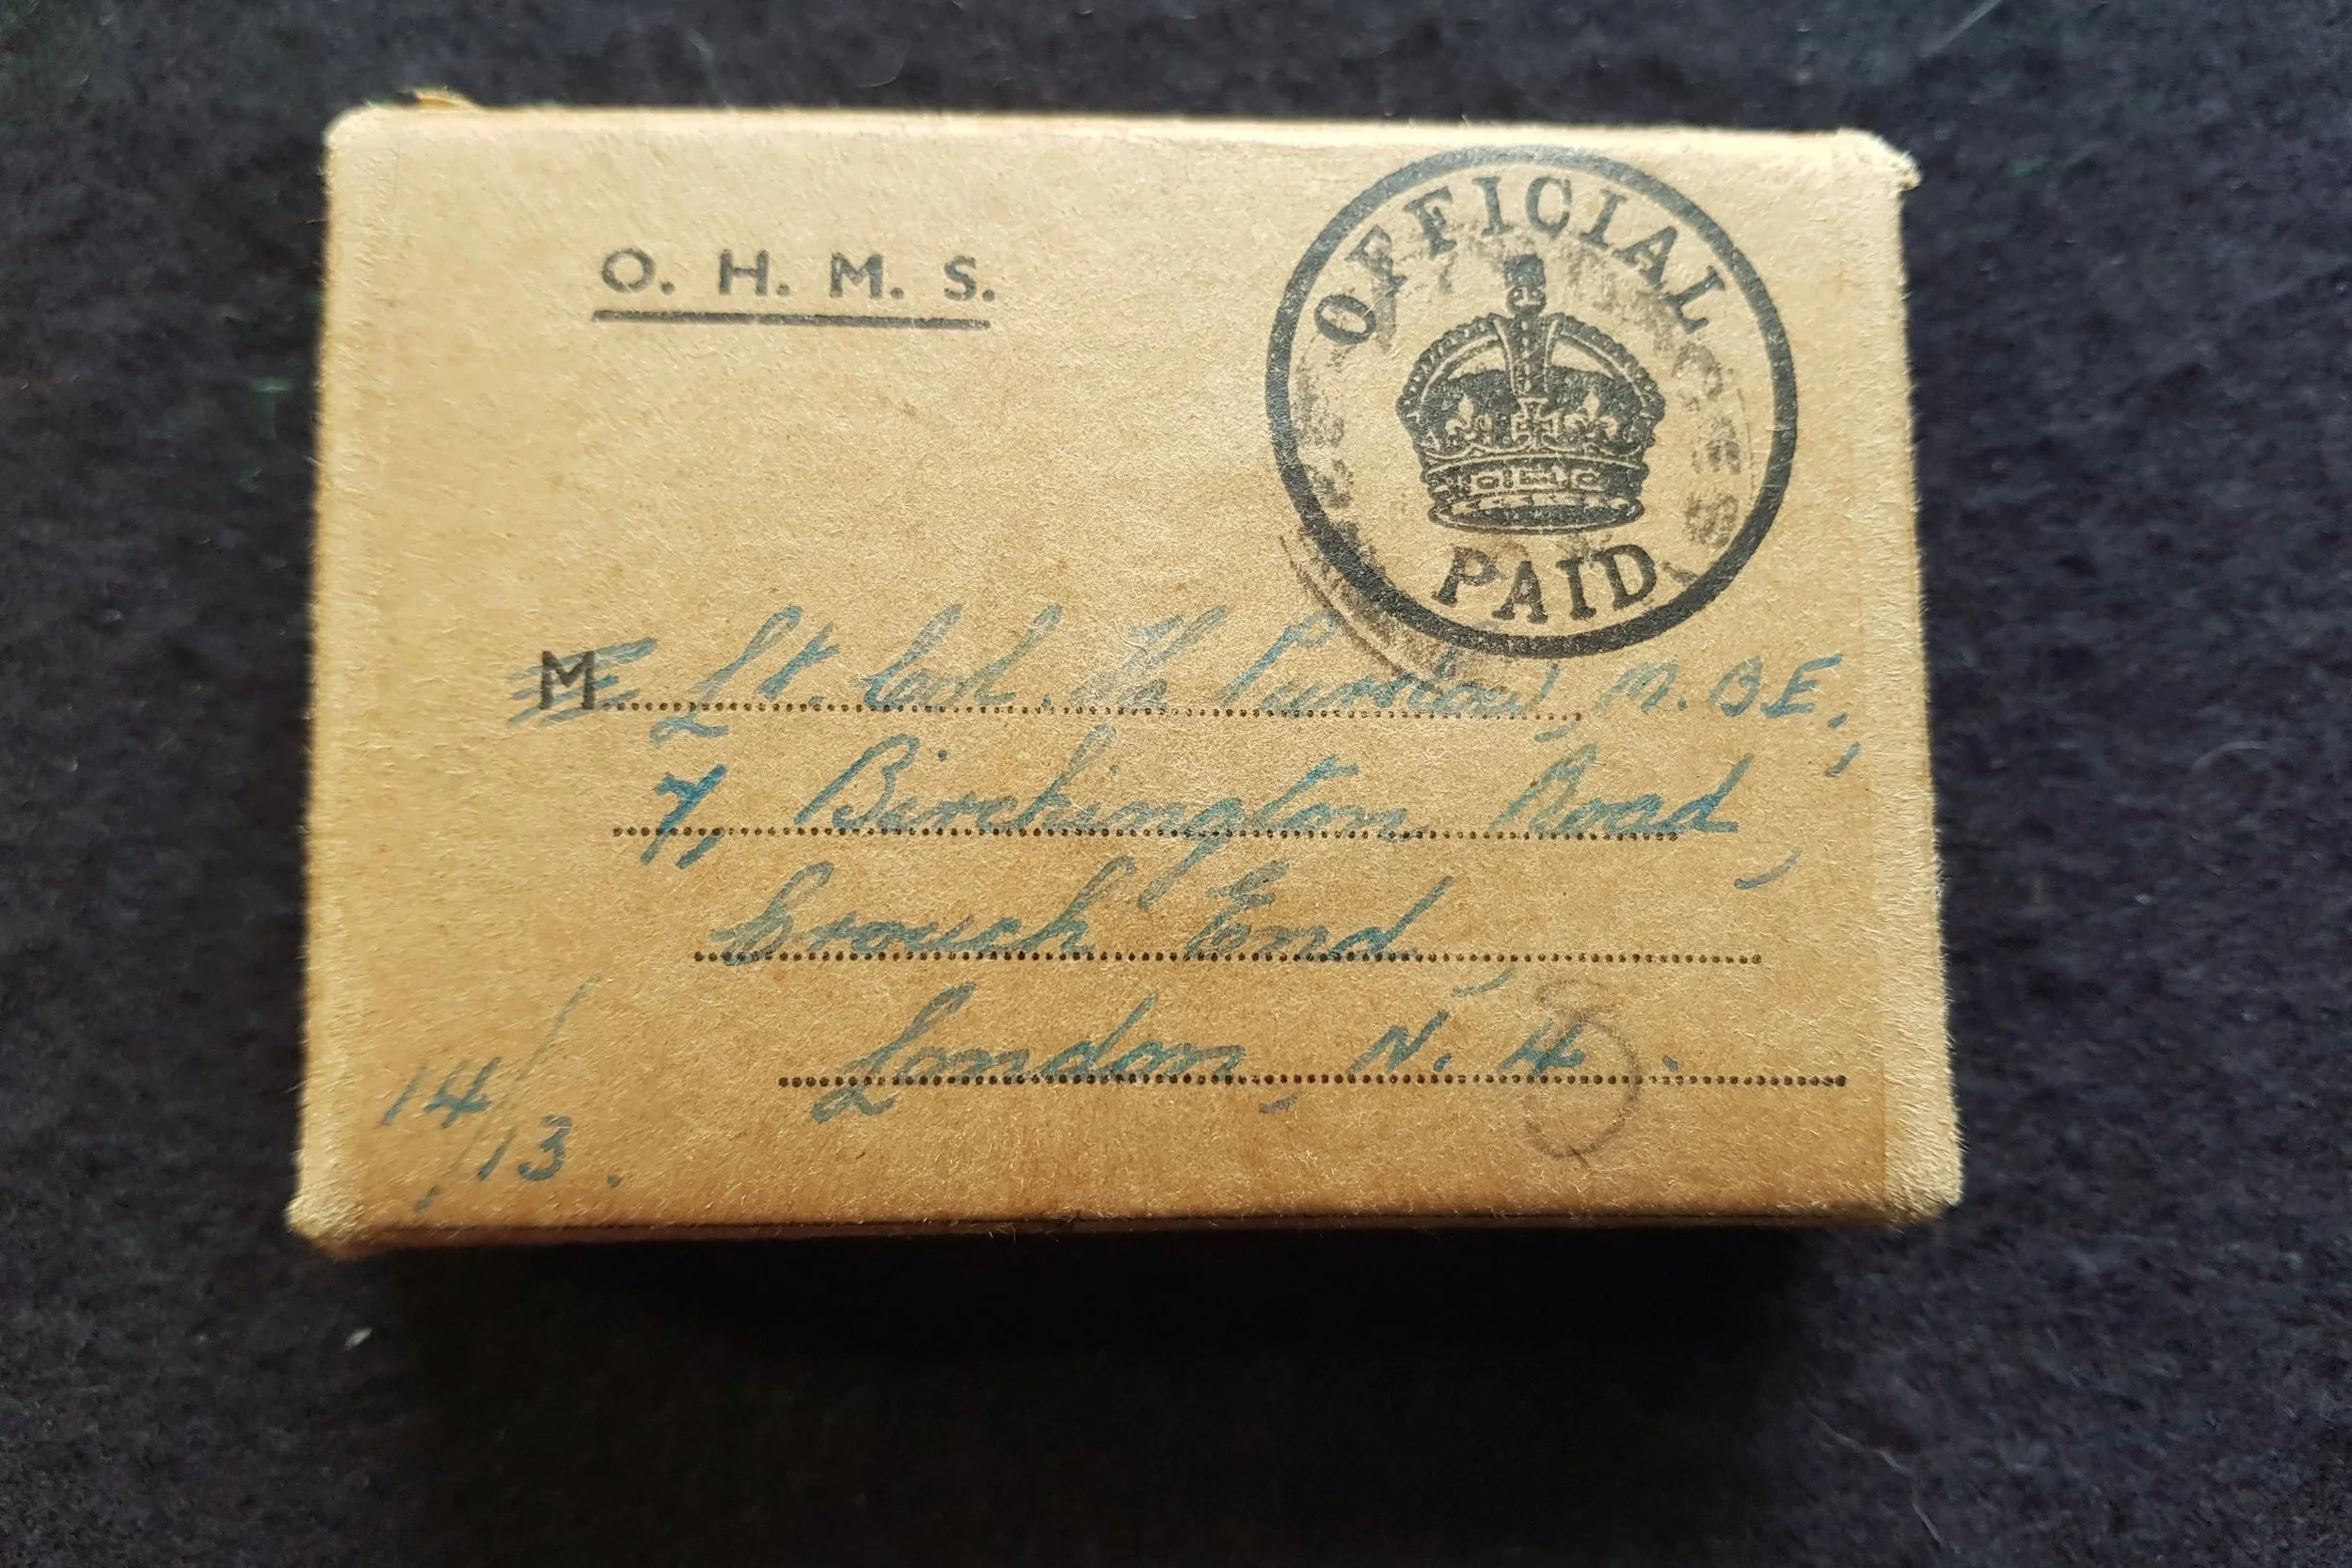 O. H. M. S.
OFFICIAL
PAID
M Lt. Col. H. Purslow, M.B.E.,
7, Birchington Road,
Crouch End,
London, N. 4.
8
14/13.